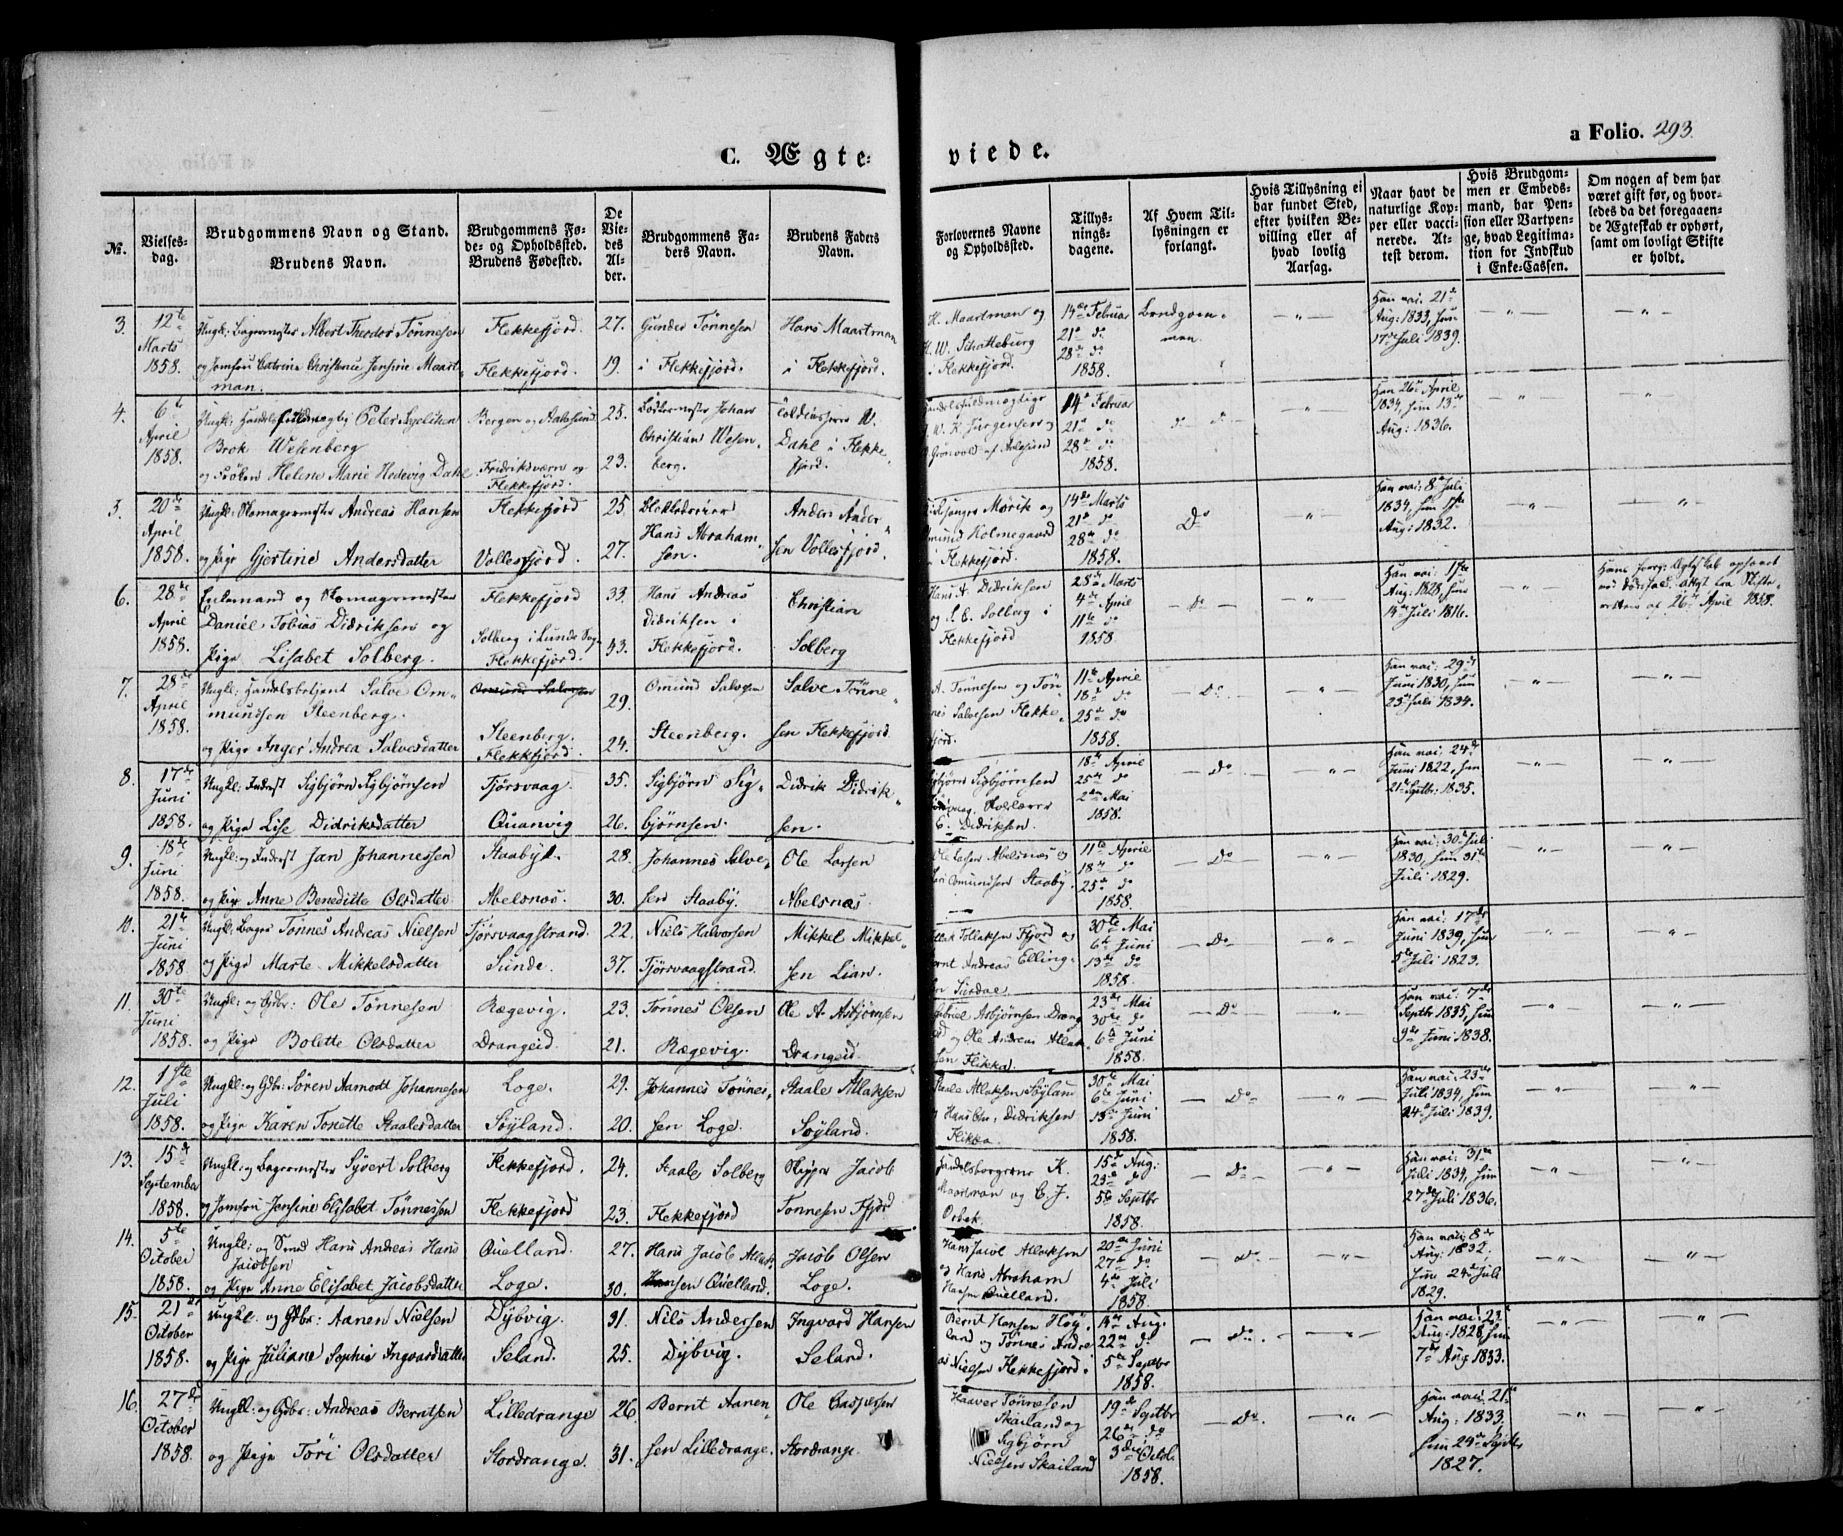 a Folio. 293.
C. Ægte- viede.
№.
Vielses-dag.
Brudgommens Navn og Stand.
Brudens Navn.
Brudgommens Fø-
de- og Opholdssted.
Brudens Fødested.
De Vie-des Al-der.
Brudgommens Fa-
ders Navn.
Brudens Faders
Navn.
Forlovernes Navne
og Opholdssted.
Tillys-
nings-
dagene.
Af Hvem Til-
lysningen er
forlangt.
Hvis Tillysning ei
har fundet Sted,
efter hvilken Be-
villing eller af
hvad lovlig
Aarsag.
Naar havt de
naturlige Kop-
per eller vacci-
nerede. At-
test derom.
Hvis Brudgom-
men er Embeds-
mand, har Pen-
sion eller Vartpen-
ge, hvad Legitima-
tion for Indskud
i Enke-Cassen.
Om nogen af dem har
været gift før, og hvor-
ledes da det foregaaen-
de Ægteskab er ophørt,
samt om lovligt Skifte
er holdt.
3. 12te Marts 1858. Ungk: Bagermester Albert Theodor Tønnesen
og Jomfru Catrine Christence Jensine Maart-
man.
Flekkefjord. 27. Gunder Tønnesen Hans Maartman
Flekkefjord. 19. i Flekkefjord. i Flekkefjord.
H. Maartman og
H. W. Schatteburg
i Flekkefjord.
14de Februar
21de do
28de do
1858.
Brudgom-
men.
Han vai. 21de
Aug: 1833, hun
17de Juli 1839.
4. 6te April 1858. Ungk: Handelsfuldmægtig Peter
Brok Wesenberg
og Frøken Helene Marie Hedevig Dahl
Bergen og Aalesund 25.
Fridriksværn og 23.
Flekkefjord.
Johan
Christian Wesen-
berg.
Dahl i Flekke-
fjord.
Handelsfuldmægtige
W. K. Jürgensen og
Grönvold af Aalesund
14de Februar
21de do
28de do
1858.
do do
Han 26de April
1834, hun 13de
Aug: 1836.
5. 20de April 1858. Ungk: Skomagermester Andreas Hansen
og Pige Gjertine Andersdatter
Flekkefjord 25.
Vollesfjord. 27.
Hans Abraham-
sen.
Anders Ander-
sen Vollesfjord.
Mørik og
Omund Holmegaard
i Flekkefjord.
14de Marts
21de do
28de do
1858.
Do
Han vai: 8de Juli
1834, hun 17de
Aug: 1832.
6. 28de April 1858. Enkemand og Skomagermester
Daniel Tobias Didriksen og
Pige Lisabet Solberg.
Flekkefjord 33.
Solberg i Lunde Sogn 43.
Flekkefjord.
Hans Andreas
Didriksen i
Flekkefjord.
Christian
Solberg
Hans A. Didriksen
og S. C. Solberg i
Flekkefjord
28de Marts
4de April
11te do
1858.
Do
Han vai: 17de
Aug: 1828, hun
14de Juli 1816.
Hans forrige Ægteskab ophævet
ved Dødsfald, attest fra Skifte-
retten af 26de April 1858.
7. 28de April 1858. Ungk: Handelsbetjent Salve Om-
mundsen Steenberg.
og Pige Anger Andrea Salvesdatter
Omund Salvesen
Steenberg. 29.
Flekkefjord. 24.
Omund Salvesen
Steenberg.
Salve Tønne-
sen Flekkefjord.
A. Tønnesen og Tøn-
nes Salvesen Flekke-
fjord.
11te April
18de do
25de do
1858.
Do
Han vai: 29de
Juni 1830, hun
23de Juli 1834.
8. 17de Juni 1858. Ungk: Inderst Sigbjørn Sigbjørnsen
og Pige Lise Didriksdatter
Tjørsvaag 35.
Quanvig 26.
Sigbjørn Sig-
bjørnsen.
Didrik Didrik-
sen.
Sigbjørn Sigbjørnsen
Didriksen.
18de April
25de do
2den Mai
1858.
Do
Han vai: 24de
Juni 1822, hun
21de Septbr: 1835.
9. 18de Juni 1858. Ungk: og Inderst Jan Johannessen
og Pige Anne Benedikte Olsdatter
Staaby. 28.
Abelsnæs. 30.
Johannes Salve-
sen Staaby.
Ole Larsen
Abelsnæs.
Ole Larsen Abelsnæs og
Omundsen Staaby.
11te April
18de do
25de do
1858.
Do
Han vai: 30de Juli
1830, hun 31te
Juli 1829.
10. 21de Juni 1858. Ungk: Bager Tønnes Andreas Nielsen
og Pige Marte Mikkelsdatter
Tjørsvaagstrand. 22.
Sunde. 37.
Niels Halvorsen
Tjørsvaagstrand.
Mikkel Mikkel-
sen Lian.
Tollaksen Fjord og
Bernt Andreas Elling-
sen Sirdal.
30te Mai
6te Juni
13de do
1858.
Do
Han vai: 17de
Juni 1839, hun
5te Juli 1823.
11. 30te Juni 1858. Ungk: og Gdbr: Ole Tønnesen
og Pige Bolette Olsdatter
Rægevig. 23.
Drangeid. 21.
Tønnes Olsen
Rægevig.
Ole A. Asbjørnsen
Drangeid.
Gabriel Asbjørnsen Drang-
eid og Ole Andreas Atlak-
sen Flikka.
23de Mai
30te do
6te Juni
1858.
Do
Han vai: 7de
Septbr 1835, hun
9de Juni 1838.
12. 1ste Juli 1858. Ungk: og Gdbr: Søren Aamodt Johannesen
og Pige Karen Tonette Staalesdatter
Loge. 29.
Søyland. 20.
Johannes Tønnes-
sen Loge.
Staale Atlaksen
Søyland.
Staale Atlaksen Søyland
og Didriksen
Flikka.
30te Mai
6te Juni
13de Juni
1858.
Do
Han vai: 23de
Juli 1834, hun
24de Juli 1839.
13. 15de September 1858. Ungk: og Bagermester Syvert Solberg
og Jomfru Jensine Elisabet Tønnessen
Flekkefjord. 24.
Flekkefjord 23.
Staale Solberg
Flekkefjord
Skipper Jacob
Tonnesen Fjord
Handelsborgerne K.
Maartman og C. J.
Orbek.
15de Aug:
23de do
5te Septbr
1858.
Do
Han vai: 31te
Juli 1834, hun
27de Juli 1836.
14. 5te October 1858. Ungk: og Smed Hans Andreas Hans
Jacobsen
og Pige Anne Elisabet Jacobsdatter
Quelland. 27.
Loge. 30.
Hans Jacob Atlak-
sen Quelland.
Jacob Olsen
Loge.
Hans Jacob Atlaksen
og Hans Abraham
Hansen Quelland.
20de Juni
27de do
4de Juli
1858.
Do
Han vai: 8de
Aug: 1832.
hun 24de Juli
1829.
15. 21de October 1858. Ungk: og Gdbr: Aanen Nielsen
og Pige Juliane Sophie Ingvardsdatter
Dybvig. 31.
Seland. 25.
Nils Andersen
Dybvig.
Ingvard Hansen
Seland.
Bernt Hansen Høy-
land og Tønnes Andre-
as Nielsen Flekkefjord.
14de Aug:
22de do
5te Septbr
1858.
Do
Han vai: 23de
Aug: 1828, hun
7de Aug 1833.
16. 27de October 1858. Ungk: og Gdbr: Andreas Berntsen
og Pige Töri Olsdatter
Lilledrange 26.
Stordrange. 31.
Bernt Aanen-
sen Lilledrange.
Ole Caspersen
Stordrange.
Haaver Tønnesen
Skailand og
Sigbjørn
Nielsen Skailand
19de Septbr
26de do
3die Octbr
1858.
Do
Han vai: 21de
Aug: 1833.
hun 24de Septbr
1827.